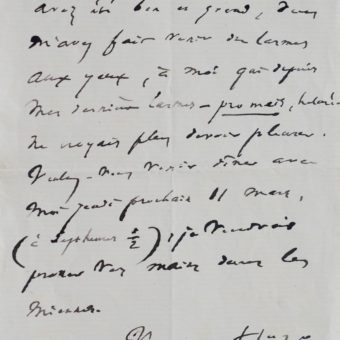 avez été bon et grand, vous
m'avez fait venir des larmes
aux yeux, à moi qui depuis
mes dernières larmes
ne croyais plus devoir pleurer.
Voulez-vous venir dîner avec
moi jeudi prochain 11 mars,
(à sept heures ½), je voudrais
presser vos mains dans les
miennes.
V Hugo